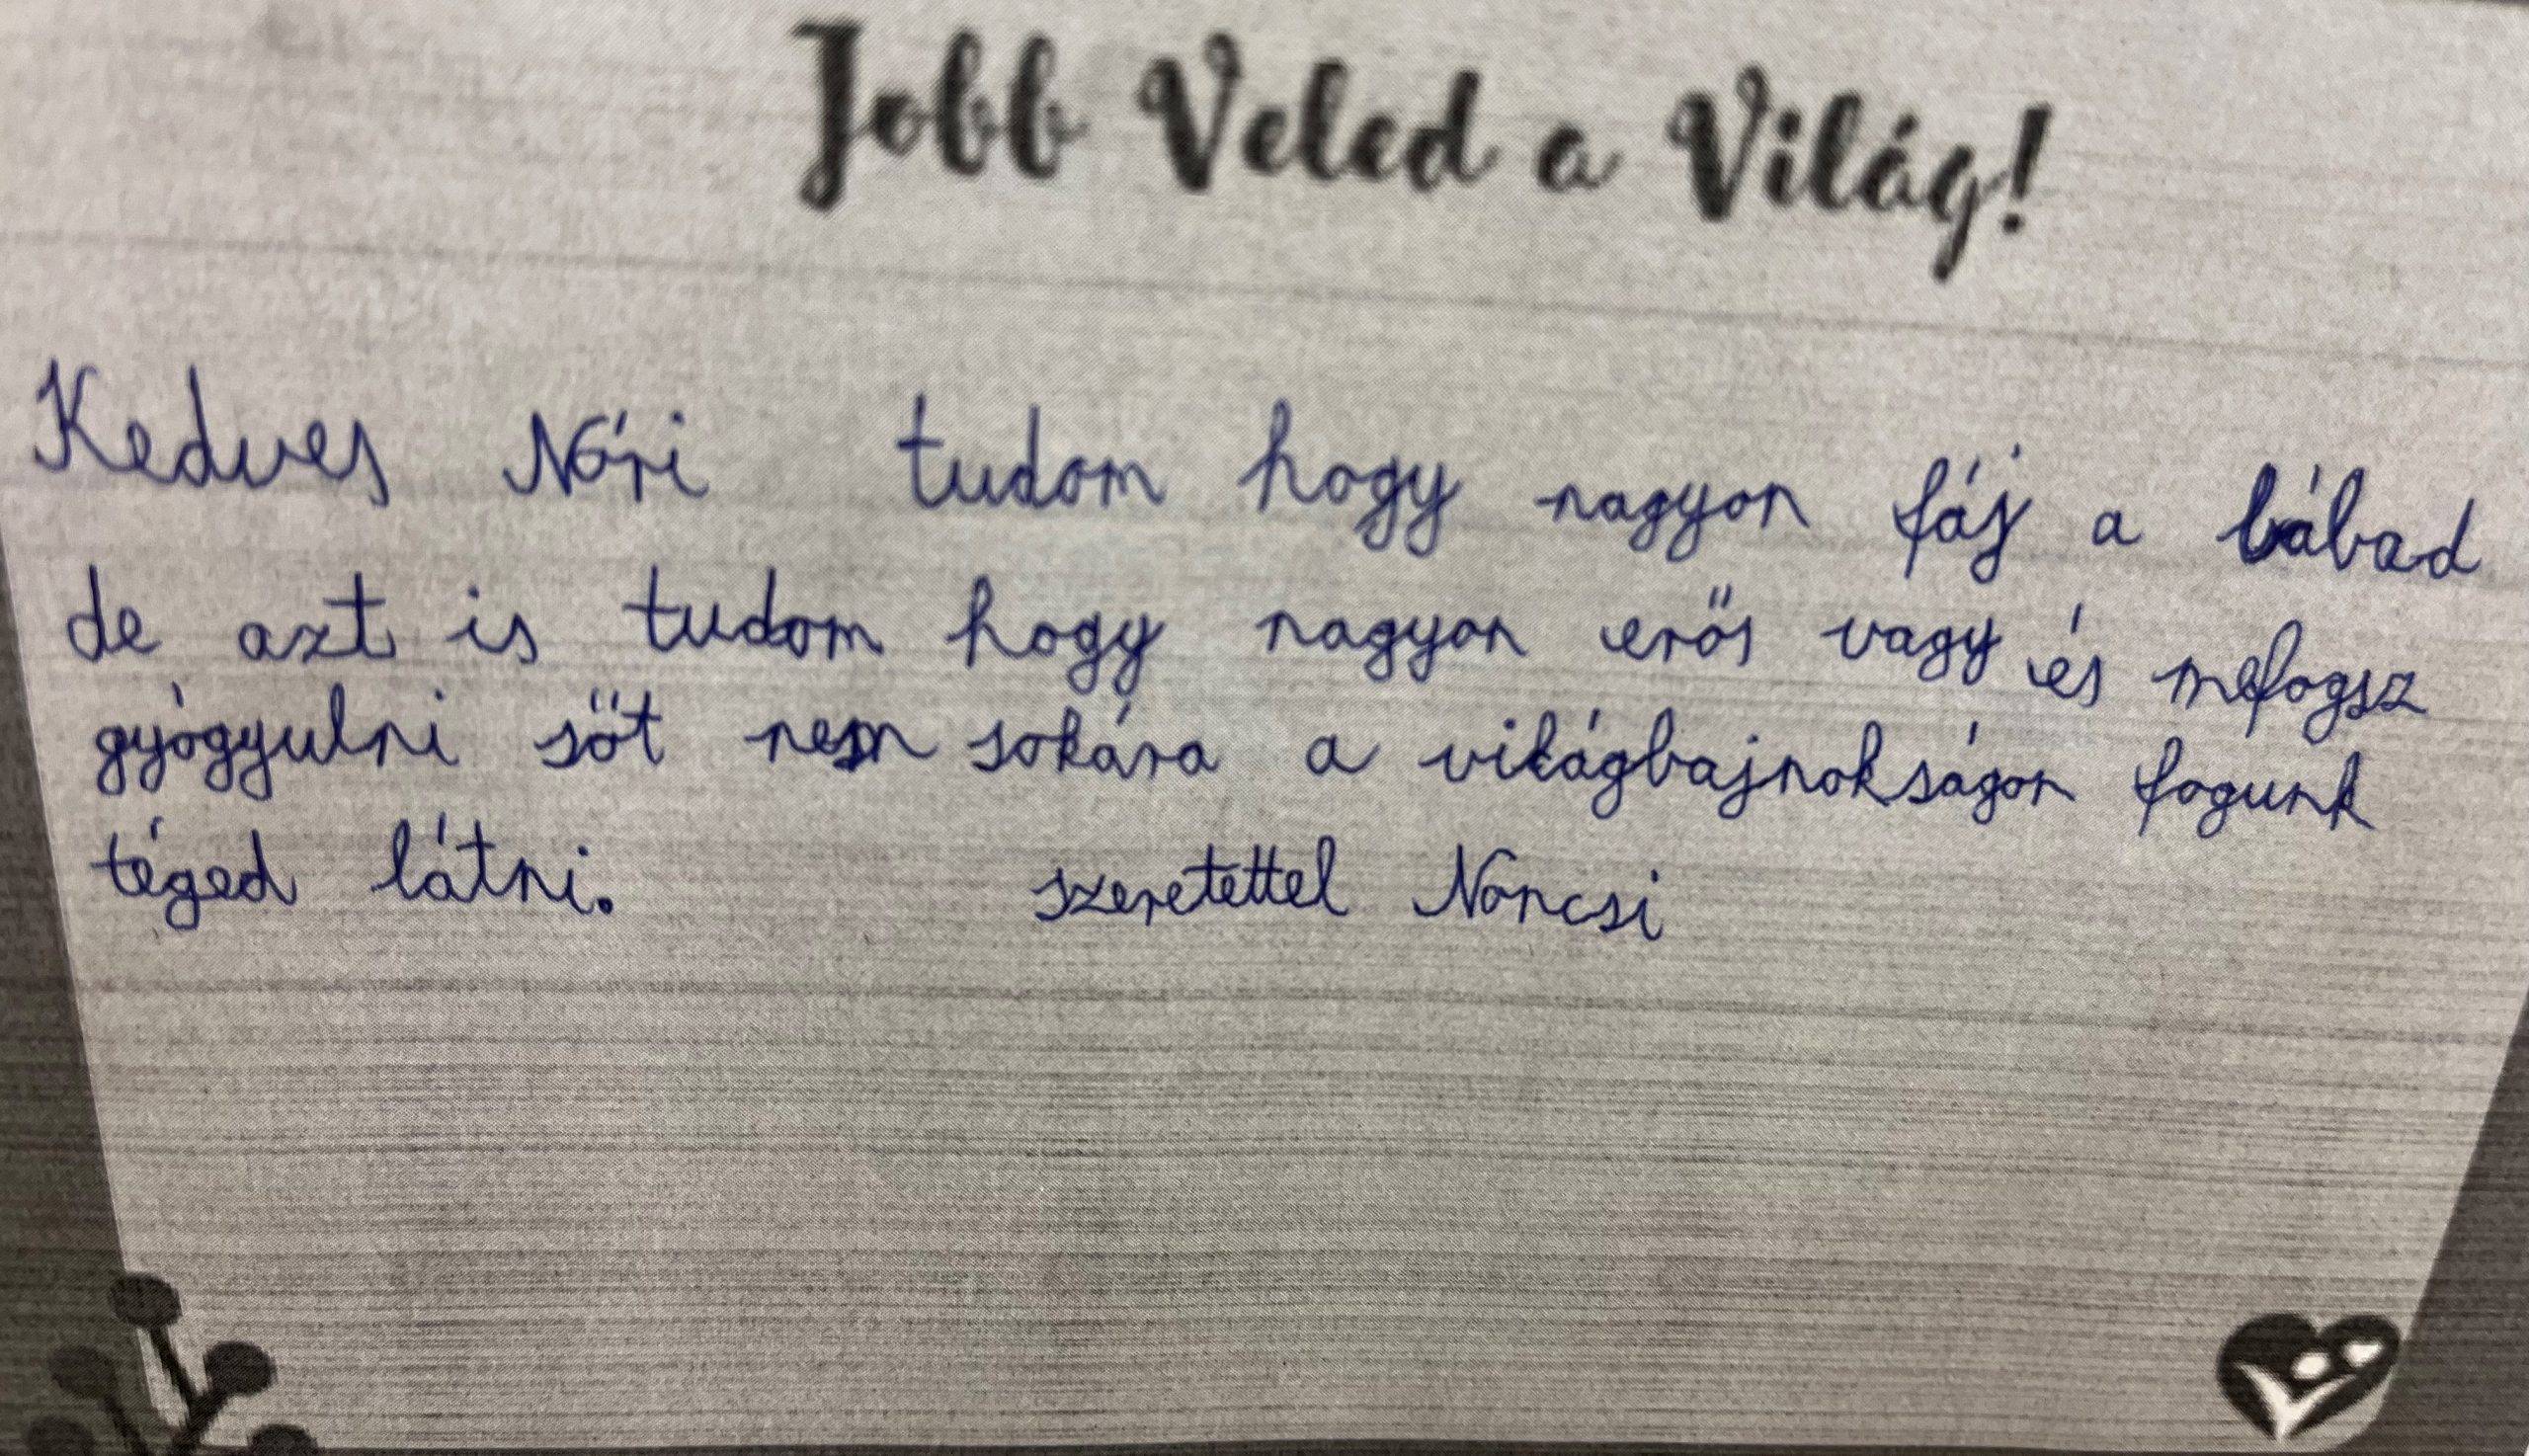 Jobb Veled a Világ!
Kedves Nóri tudom hogy nagyon fáj a lábad
de azt is tudom hogy nagyon erős vagy és mefogsz
gyógyulni sőt nem sokára a világbajnokságon fogunk
téged látni. szeretettel Noncsi